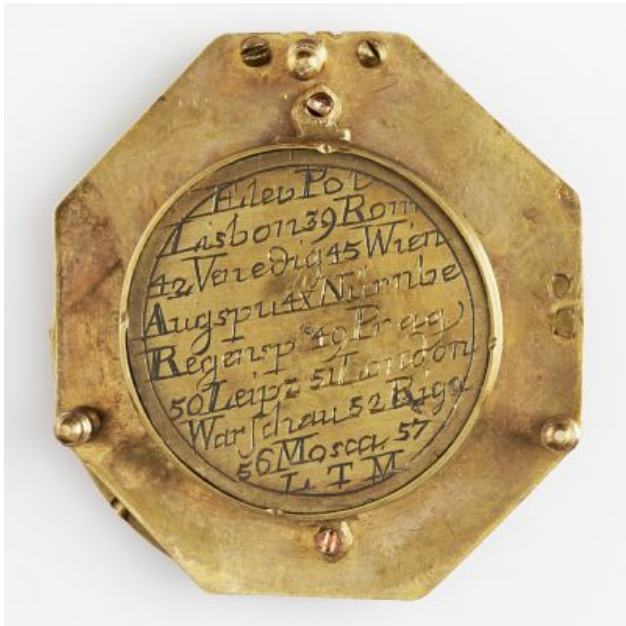 Elev Pol
Lisbon 39 Rom
42 Venedig 45 Wien
Augspu 4x Nürnbe
Regensp 49 Prag
50 Leipz 51 London
Warschau 52 Riga
56 Mosca 57
L T M